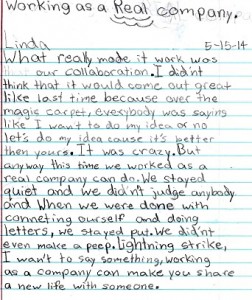 Working as a Real company.
Linda 5-15-14
What really made it work was
our collaboration. I didn't
think that it would come out great
like last time because over the
magic carpet, everybody was saying
like I want to do my idea or no
let's do my idea cause it's better
then yours. It was crazy. But
anyway this time we worked as a
real company can do. We stayed
quiet and we didn't judge anybody
and When we were done with
conneting ourself and doing
letters, we stayed put. We didn't
even make a peep. Lightning strike,
I wan't to say something, working
as a company can make you share
a new life with someone.